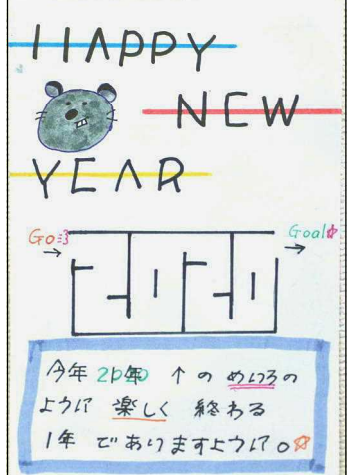 HAPPY
NEW
YEAR
Go
Goal☆
今年 ↑の めいろの
ように 楽しく 終わる
1年 でありますように。☆